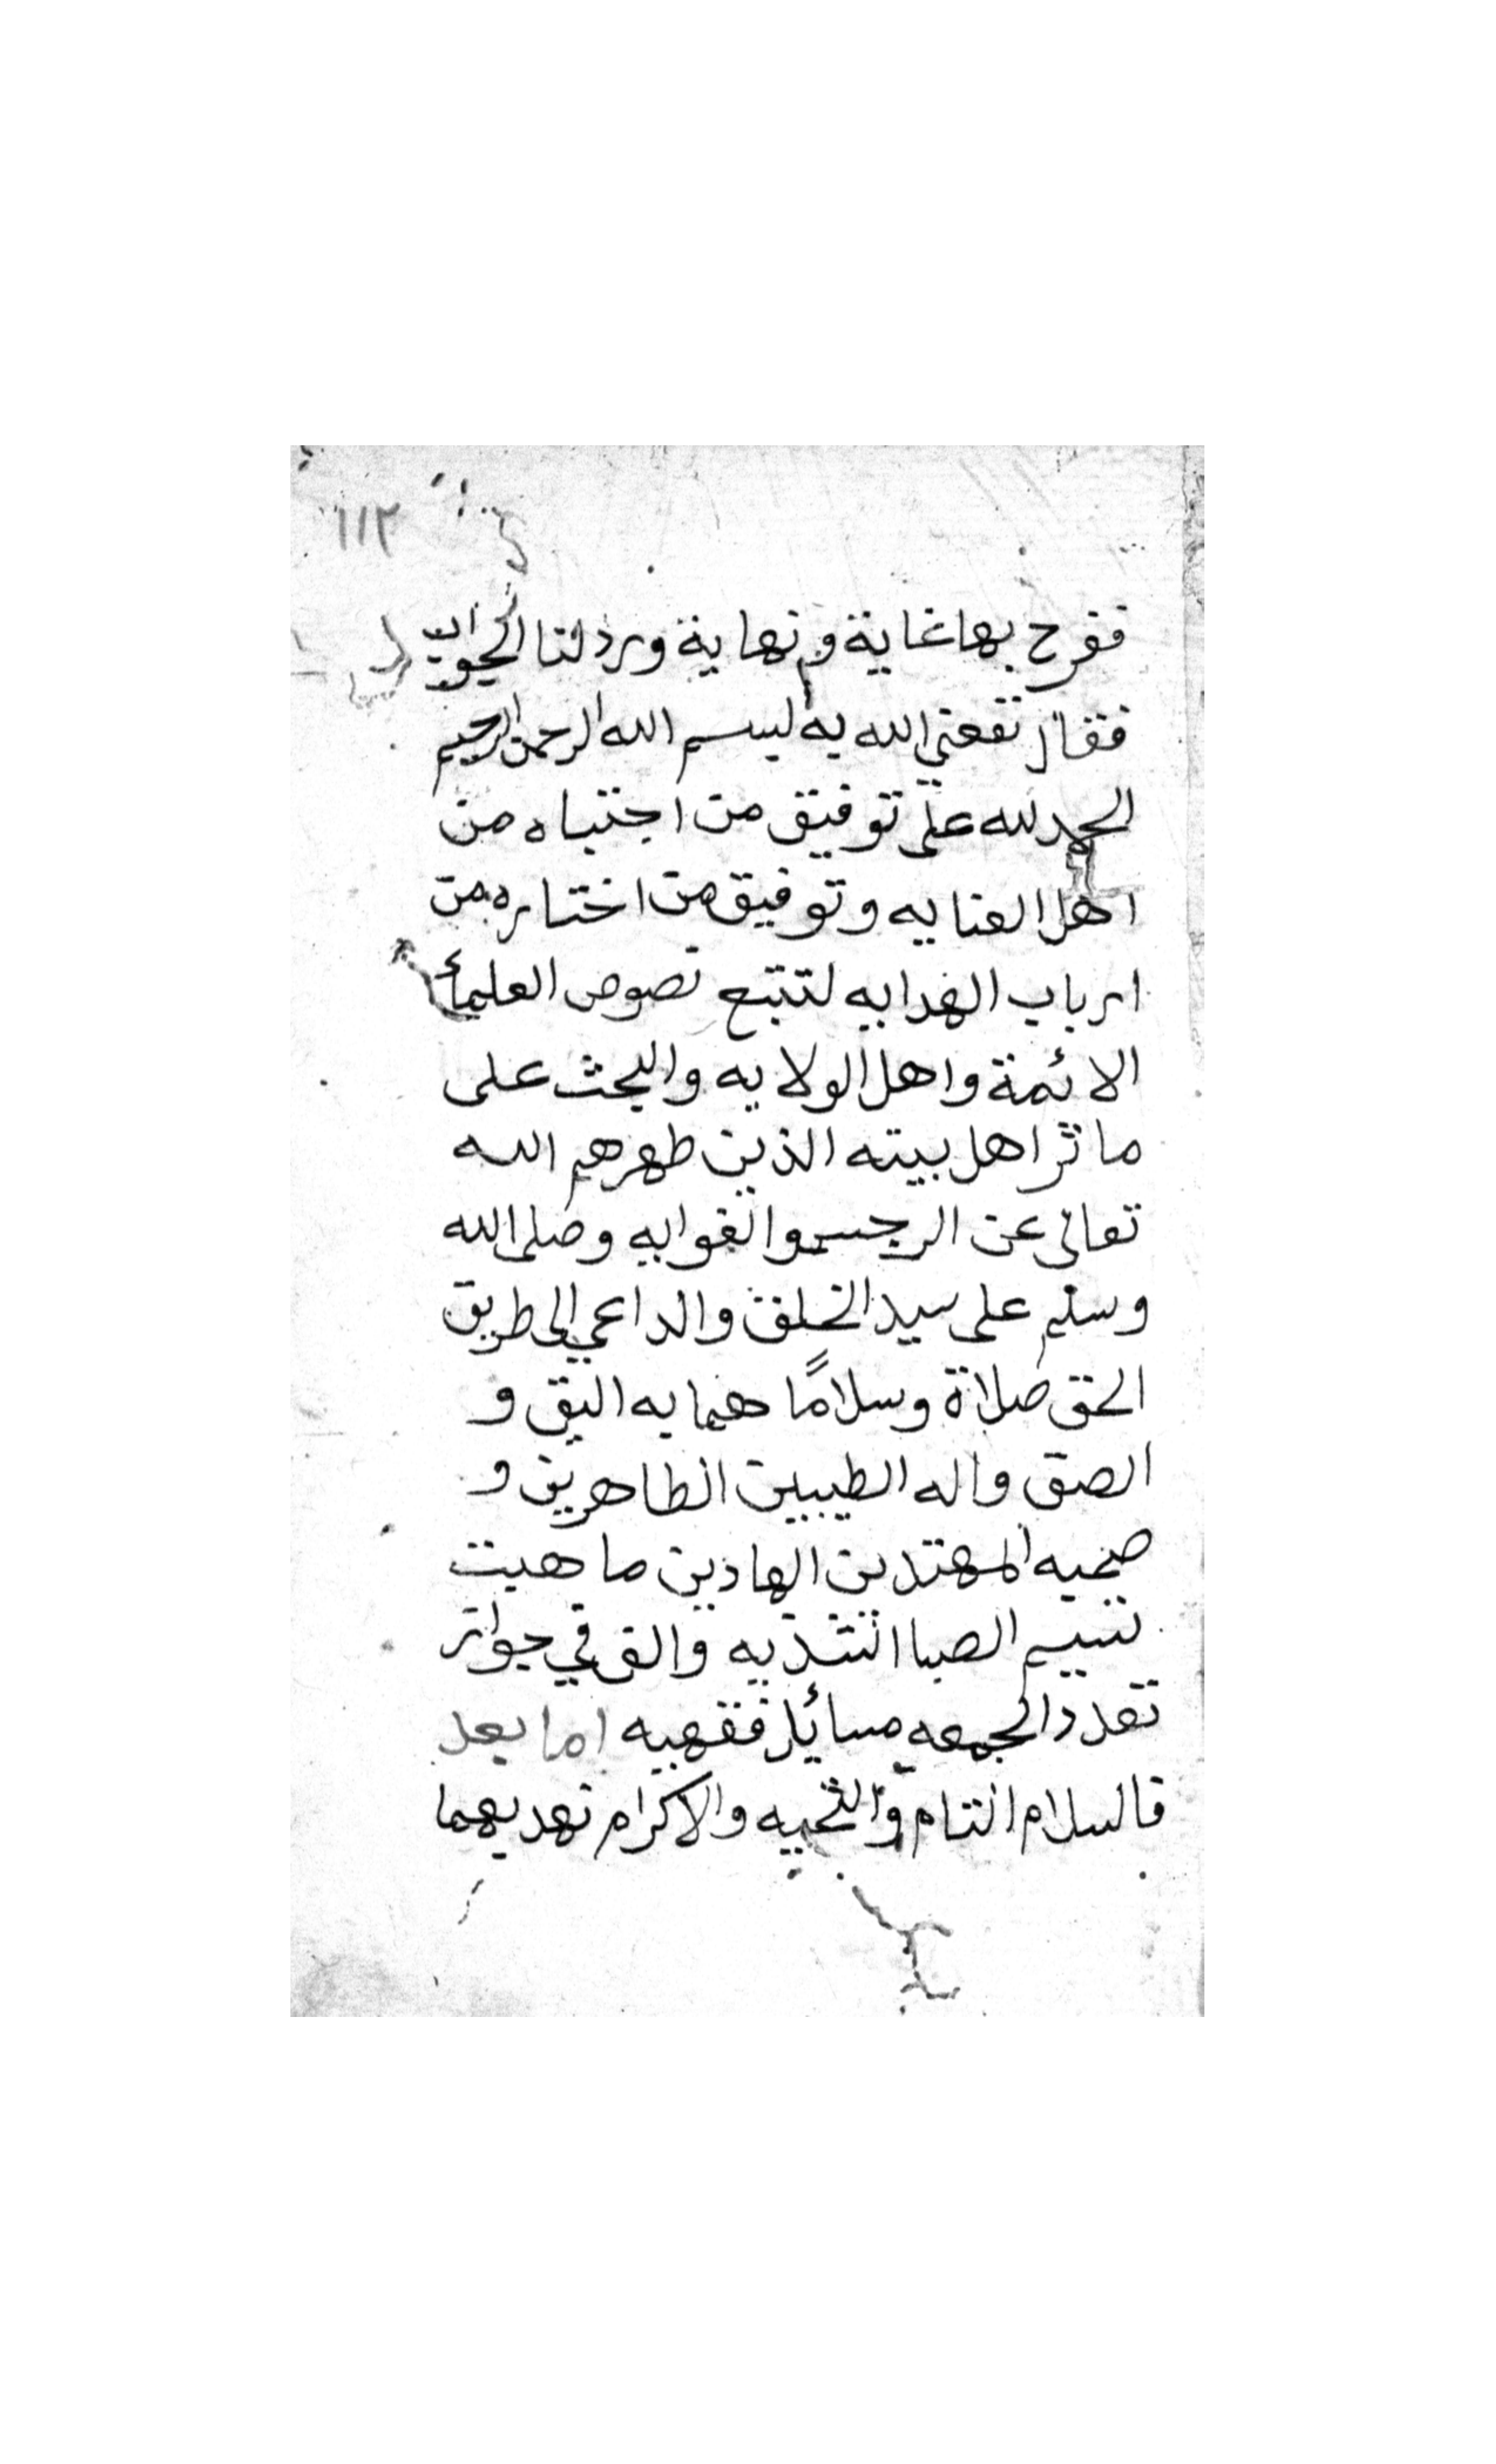 ١١٢
ففرح بها غاية ونهاية ورد لنا الجواب
فقال نفعني الله به بسم الله الرحمن الرحيم
الحمد لله على توفيق من اجتباه من
اهل العنايه وتوفيق من اختاره من
ارباب الهدايه لتتبع نصوص العلماء
الائمة واهل الولايه والبحث على
مآثر اهل بيته الذين طهرهم الله
تعالى عن الرجس والغوايه وصلى الله
وسلم على سيد الخلق والداعي الى طريق
الحق صلاة وسلامًا هما به اليق و
الصق واله الطيبين الطاهرين و
صحبه المهتدين الهادين ما هبت
نسيم الصبا الشذيه والق في جواز
تعدد الجمعه مسائل فقهيه اما بعد
فالسلام التام والتحيه والاكرام نهديهما